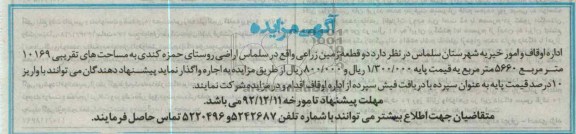 آگهی مزایده
اداره اوقاف و امور خیریه شهرستان سلماس در نظر دارد دو قطعه زمین زراعی واقع در سلماس اراضی روستای حمزه کندی به مساحت های تقریبی ۱۰۱۶۹
متر مربع و ۵۶۶۰ متر مربع به قیمت پایه ۱/۳۰۰/۰۰۰ ریال و ۸۰۰/۰۰۰ ریال از طریق مزایده به اجاره واگذار نماید پیشنهاد دهندگان می توانند با واریز
۱۰ درصد قیمت پایه به عنوان سپرده با دریافت فیش سپرده از اداره اوقاف اقدام و در مزایده شرکت نمایند.
مهلت پیشنهاد تا مورخه ۹۲/۱۲/۱۱ می باشد.
متقاضیان جهت اطلاع بیشتر می توانند با شماره تلفن ۵۲۴۲۶۸۷ و ۵۲۲۰۴۹۶ تماس حاصل فرمایند.